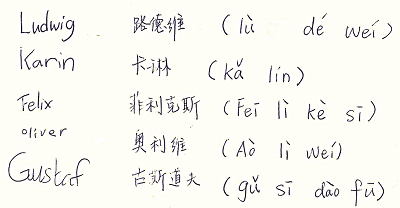 Ludwig 路德维 (lù dé weí)
Karin 卡琳 (kǎ lín)
Felix 菲利克斯 (Feī lì kè sī)
oliver 奥利维 (Aò lì weí)
Gustaf 古斯道夫 (gǔ sī dào fū)